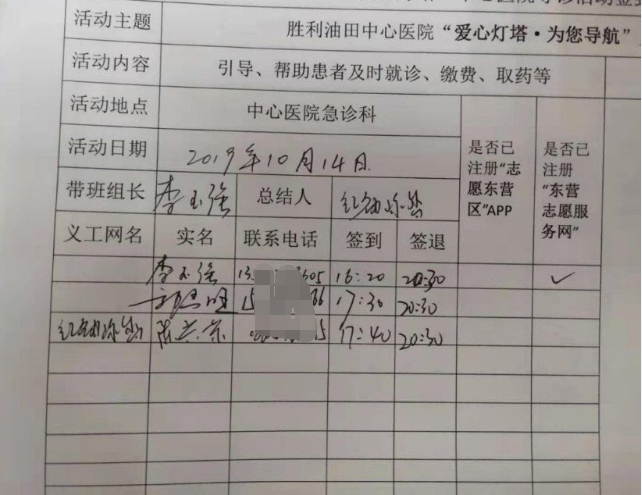 活动主题 胜利油田中心医院“爱心灯塔·为您导航”
活动内容 引导、帮助患者及时就诊、缴费、取药等
活动地点 中心医院急诊科
活动日期 2019年10月14日
是否已注册“志愿东营区”APP
是否已注册“东营志愿服务网”
带班组长 李玉强 总结人
义工网名 实名 联系电话 签到 签退
李玉强 16:20 20:30 ✓
17:30 20:30
17:40 20:30